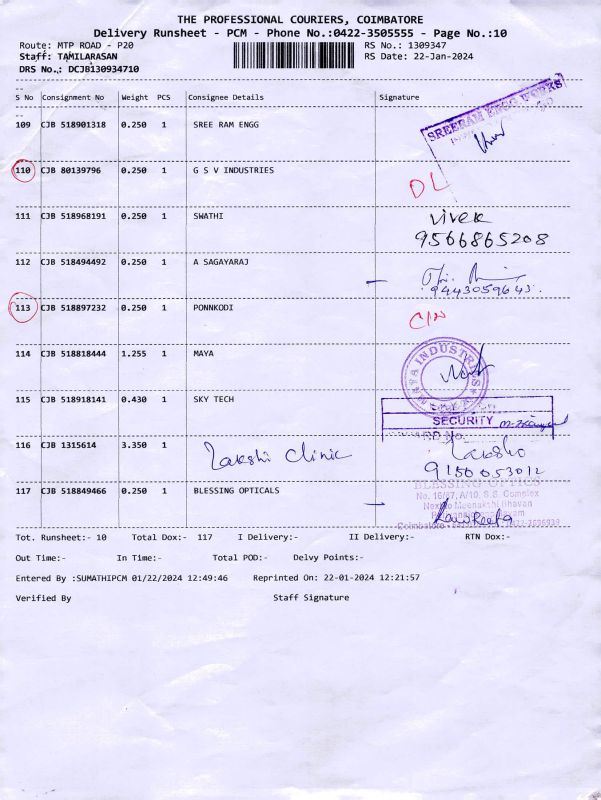 THE PROFESSIONAL COURIERS, COIMBATORE
Delivery Runsheet - PCM - Phone No.:0422-3505555 - Page No.:10
Route: MTP ROAD - P20 RS No.: 1309347
Staff: TAMILARASAN RS Date: 22-Jan-2024
DRS No.: DCJB130934710
S No Consignment No Weight PCS Consignee Details Signature
109 CJB 518901318 0.250 1 SREE RAM ENGG
SREERAM ENGG WORKS
110 CJB 80139796 0.250 1 G S V INDUSTRIES DL
111 CJB 518968191 0.250 1 SWATHI Vivek
9566865208
112 CJB 518494492 0.250 1 A SAGAYARAJ
9443059643
113 CJB 518897232 0.250 1 PONNKODI
114 CJB 518818444 1.255 1 MAYA
MAYA INDUSTRIES
115 CJB 518918141 0.430 1 SKY TECH
SECURITY
116 CJB 1315614 3.350 1 Lakshi Clinic
9150053012
117 CJB 518849466 0.250 1 BLESSING OPTICALS
BLESSING OPTICS
No. 16/87, A/10, S.S. Complex
Next to Meenakshi Bhavan
Tot. Runsheet:- 10 Total Dox:- 117 I Delivery:- II Delivery:- RTN Dox:-
Out Time:- In Time:- Total POD:- Delvy Points:-
Entered By :SUMATHIPCM 01/22/2024 12:49:46 Reprinted On: 22-01-2024 12:21:57
Verified By Staff Signature